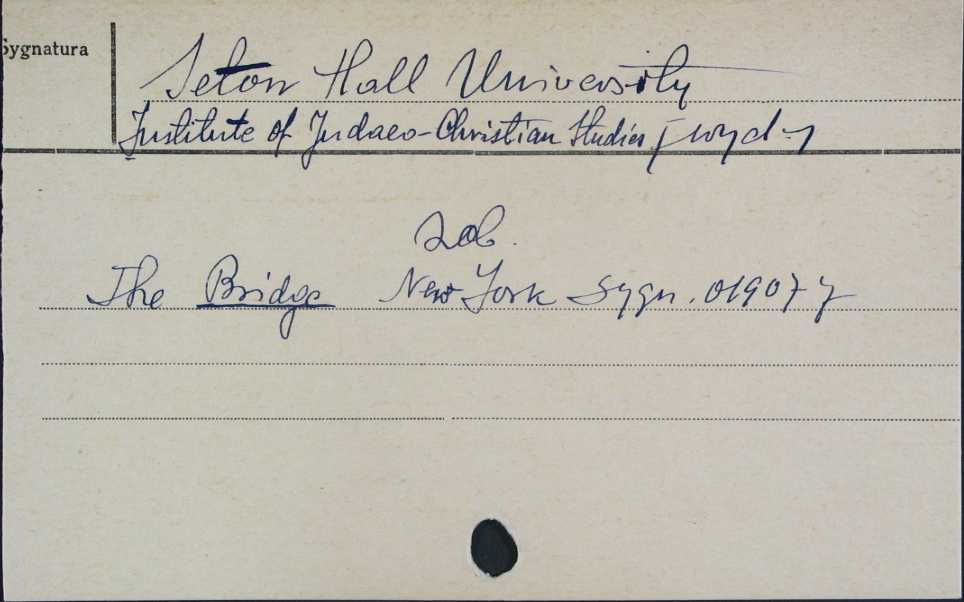 Sygnatura
Seton Hall University
Institute of Judaeo-Christian Studies [wyd-y
zob.
The Bridge New York Sygn. 019077